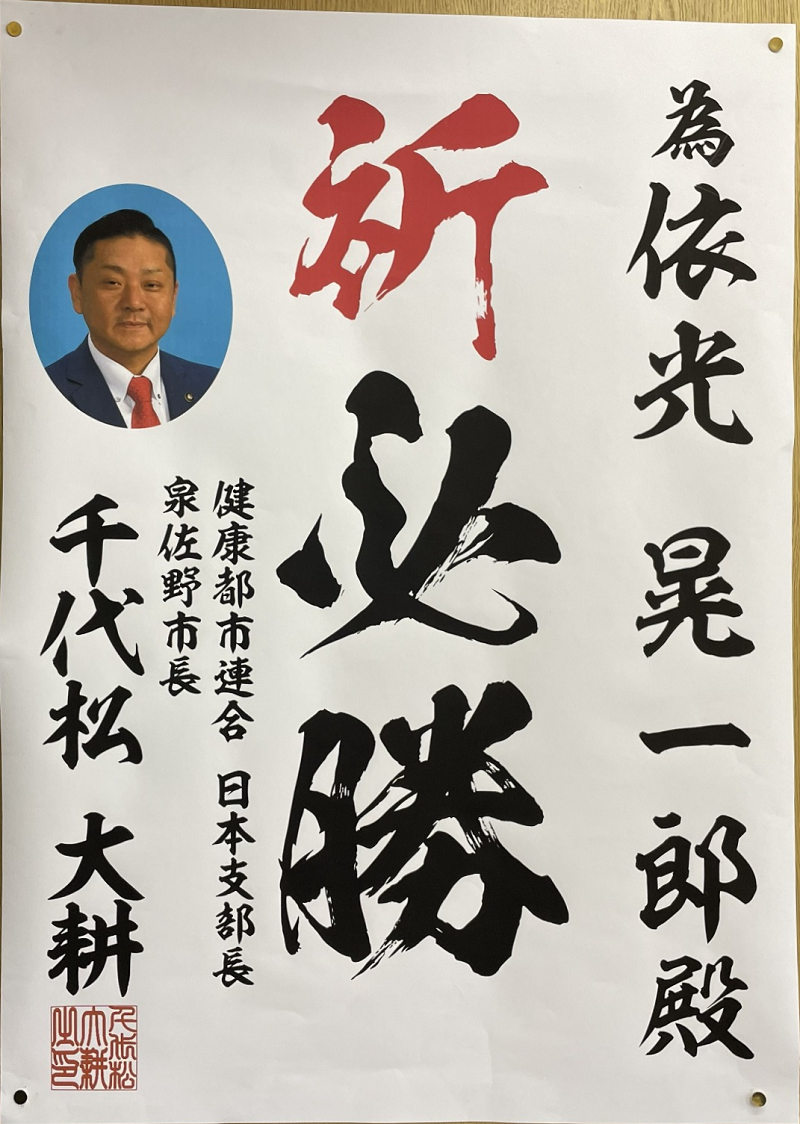 為 依光 晃一郎殿
祈必勝
健康都市連合 日本支部長
泉佐野市長
千代松 大耕
千代松
大耕
之印